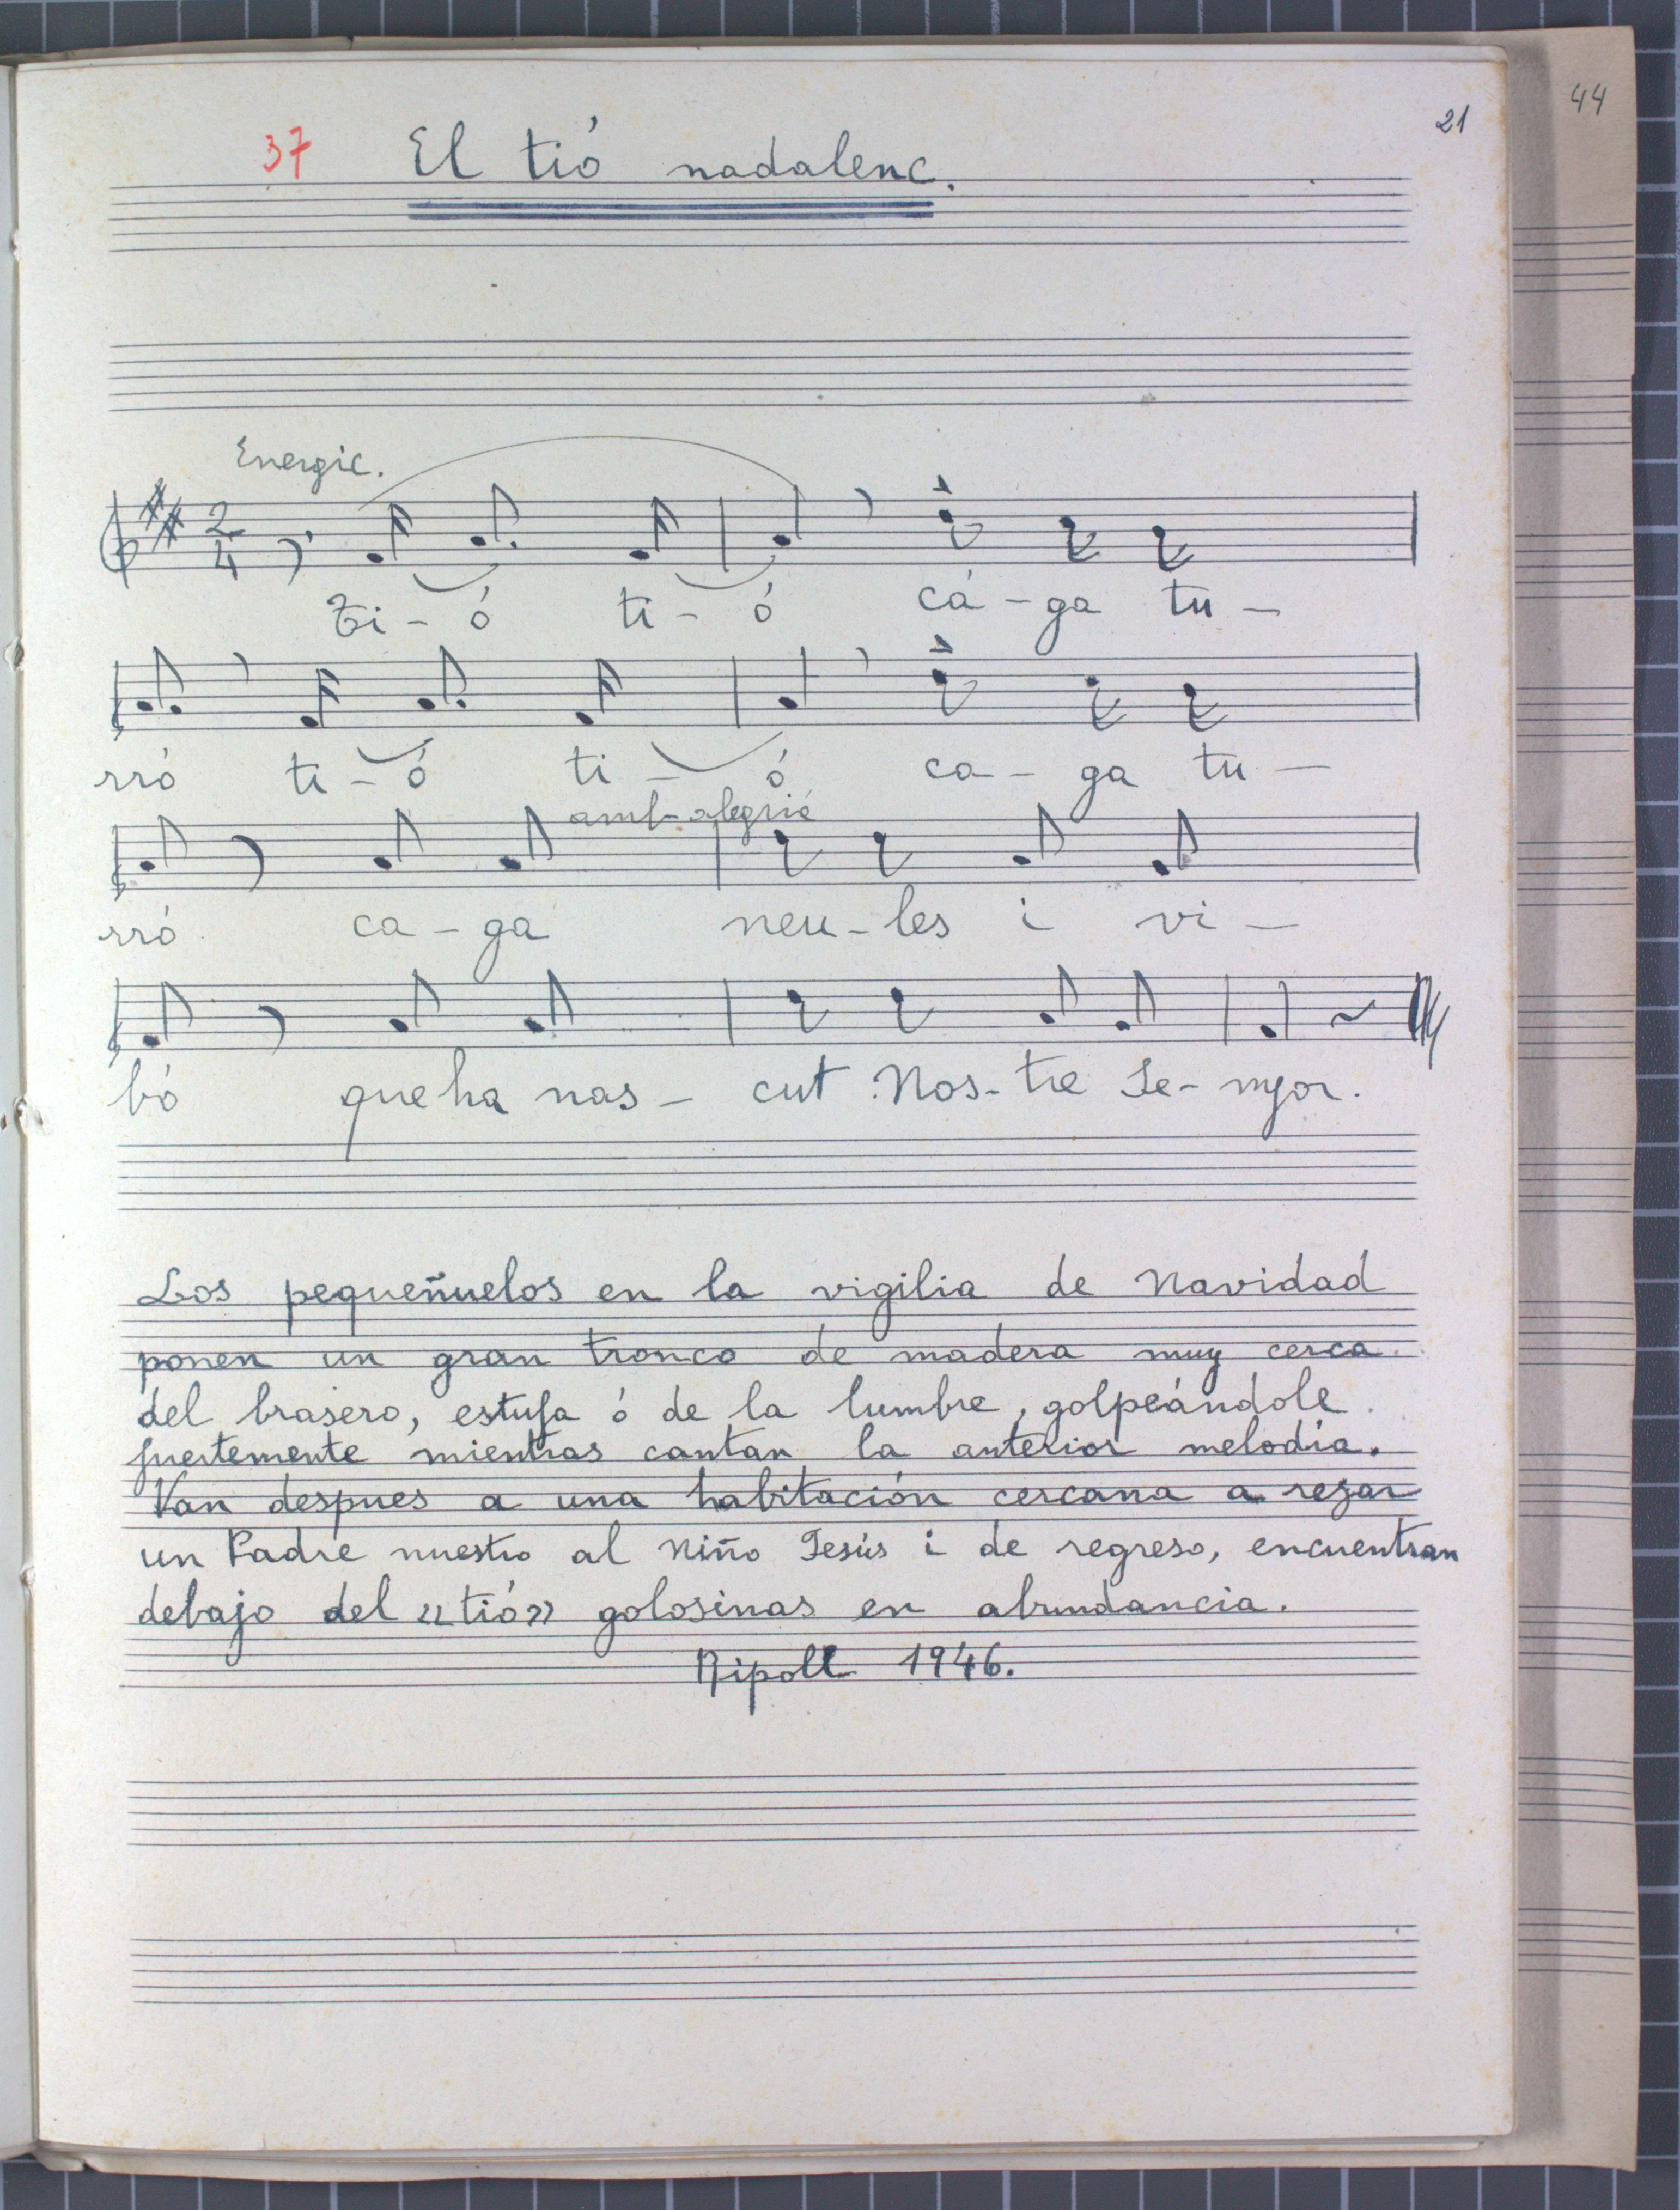 44
21
37 El tió nadalenc.
Energic.
2
4
Ti - ó ti - ó cá - ga tu -
rró ti - ó ti - ó ca - ga tu -
amb alegria
rró ca - ga neu - les i vi -
bó que ha nas - cut Nos - tre Se - nyor.
Los pequeñuelos en la vigilia de Navidad
ponen un gran tronco de madera muy cerca
del brasero, estufa ó de la lumbre, golpeándole
fuertemente mientras cantan la anterior melodía.
Van despues a una habitación cercana a rezar
un Padre nuestro al Niño Jesús i de regreso, encuentran
debajo del «tió» golosinas en abundancia.
Ripoll 1946.